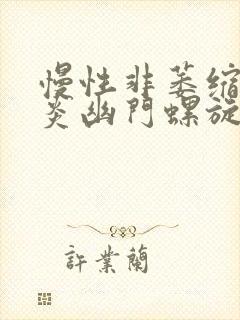 慢性非萎縮
炎幽門螺旋
許業蘭